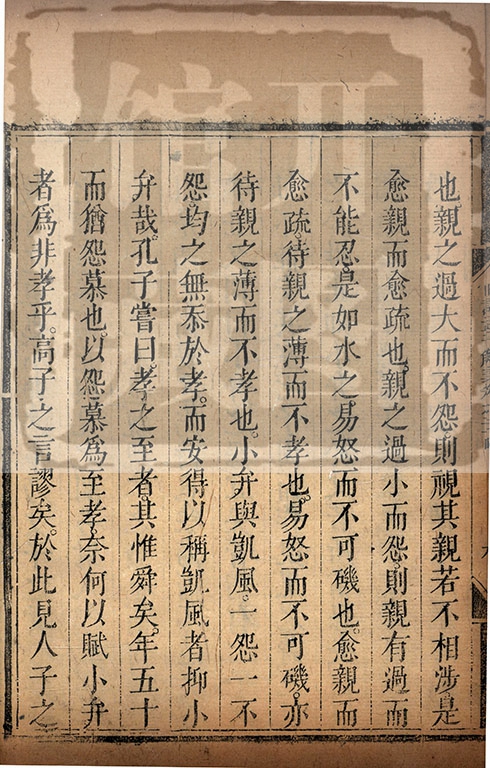 也親之過大而不怨則視其親若不相涉是
愈親而愈疏也親之過小而怨則親有過而
不能忍是如水之易怒而不可磯也愈親而
愈疏待親之薄而不孝也易怒而不可磯亦
待親之薄而不孝也小弁與凱風一怨一不
怨均之無忝於孝而安得以稱凱風者抑小
弁哉孔子嘗曰孝之至者其惟舜矣年五十
而猶怨慕也以怨慕爲至孝奈何以賦小弁
者爲非孝乎高子之言謬矣於此見人子之